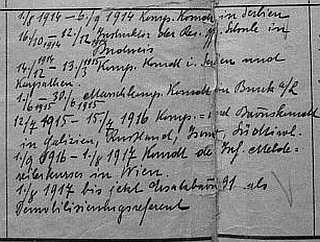 1./8 1914 – 6./9 1914 Komp. Komdt in Serbien
16./10 1914 – 12./12 1914 Instruktor der Res. Off. Schule in
Bruck
14./12 1914 – 13./3 1915 Komp. Komdt i. Serbien und
Karpathen.
1./6 1915 30./6 1915 Marschkomp. Komdt in Bruck a/L
12/7 1915 – 15/4 1916 Komp. = und Baonskomdt
in Galizien, Russland, Isonzo, Südtirol.
1./9 1916 – 1./8 1917 Komdt des Inf. Melde=
reiterkurses in Wien.
1./8 1917 bis jetzt Ersatzbaon 91 als
Demobilisierungsreferent